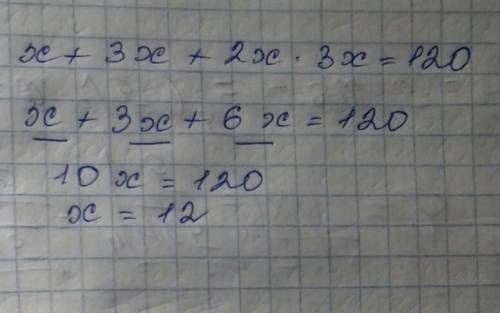 x + 3x + 2x · 3x = 120
x + 3x + 6x = 120
10x = 120
x = 12